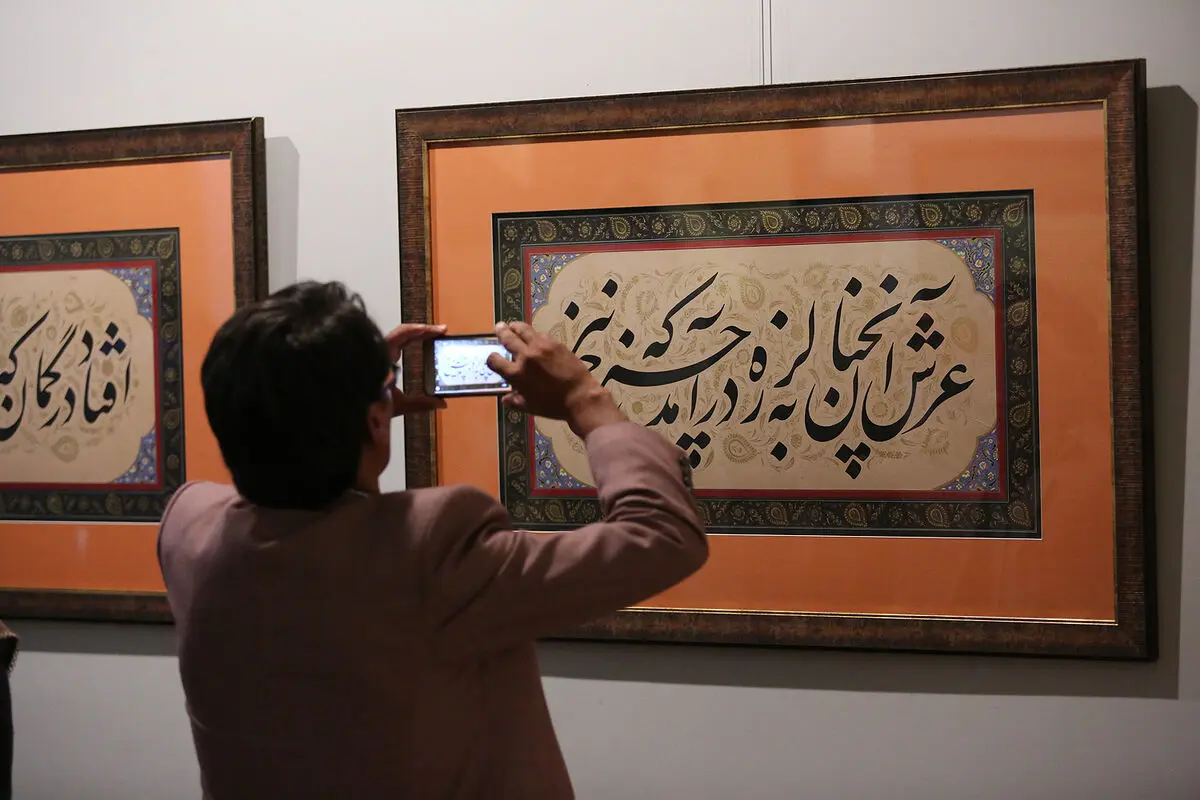 عرش آنچنان به لرزه درآمد که چرخ نیز
افتاد در گمان که